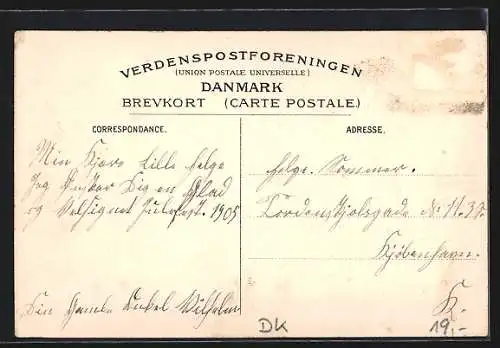 VERDENSPOSTFORENINGEN
(UNION POSTALE UNIVERSELLE)
DANMARK
BREVKORT (CARTE POSTALE.)
CORRESPONDANCE.
Min Kjære lille Helge
Jeg Ønsker Dig en Glad
og Velsignet Julefest. 1905
Din Gamle Onkel Wilhelm
ADRESSE.
Helge. Sommer.
Tordenskjolsgade N. 11. 3.
Kjöbenhavn.
K.
DK
19,-